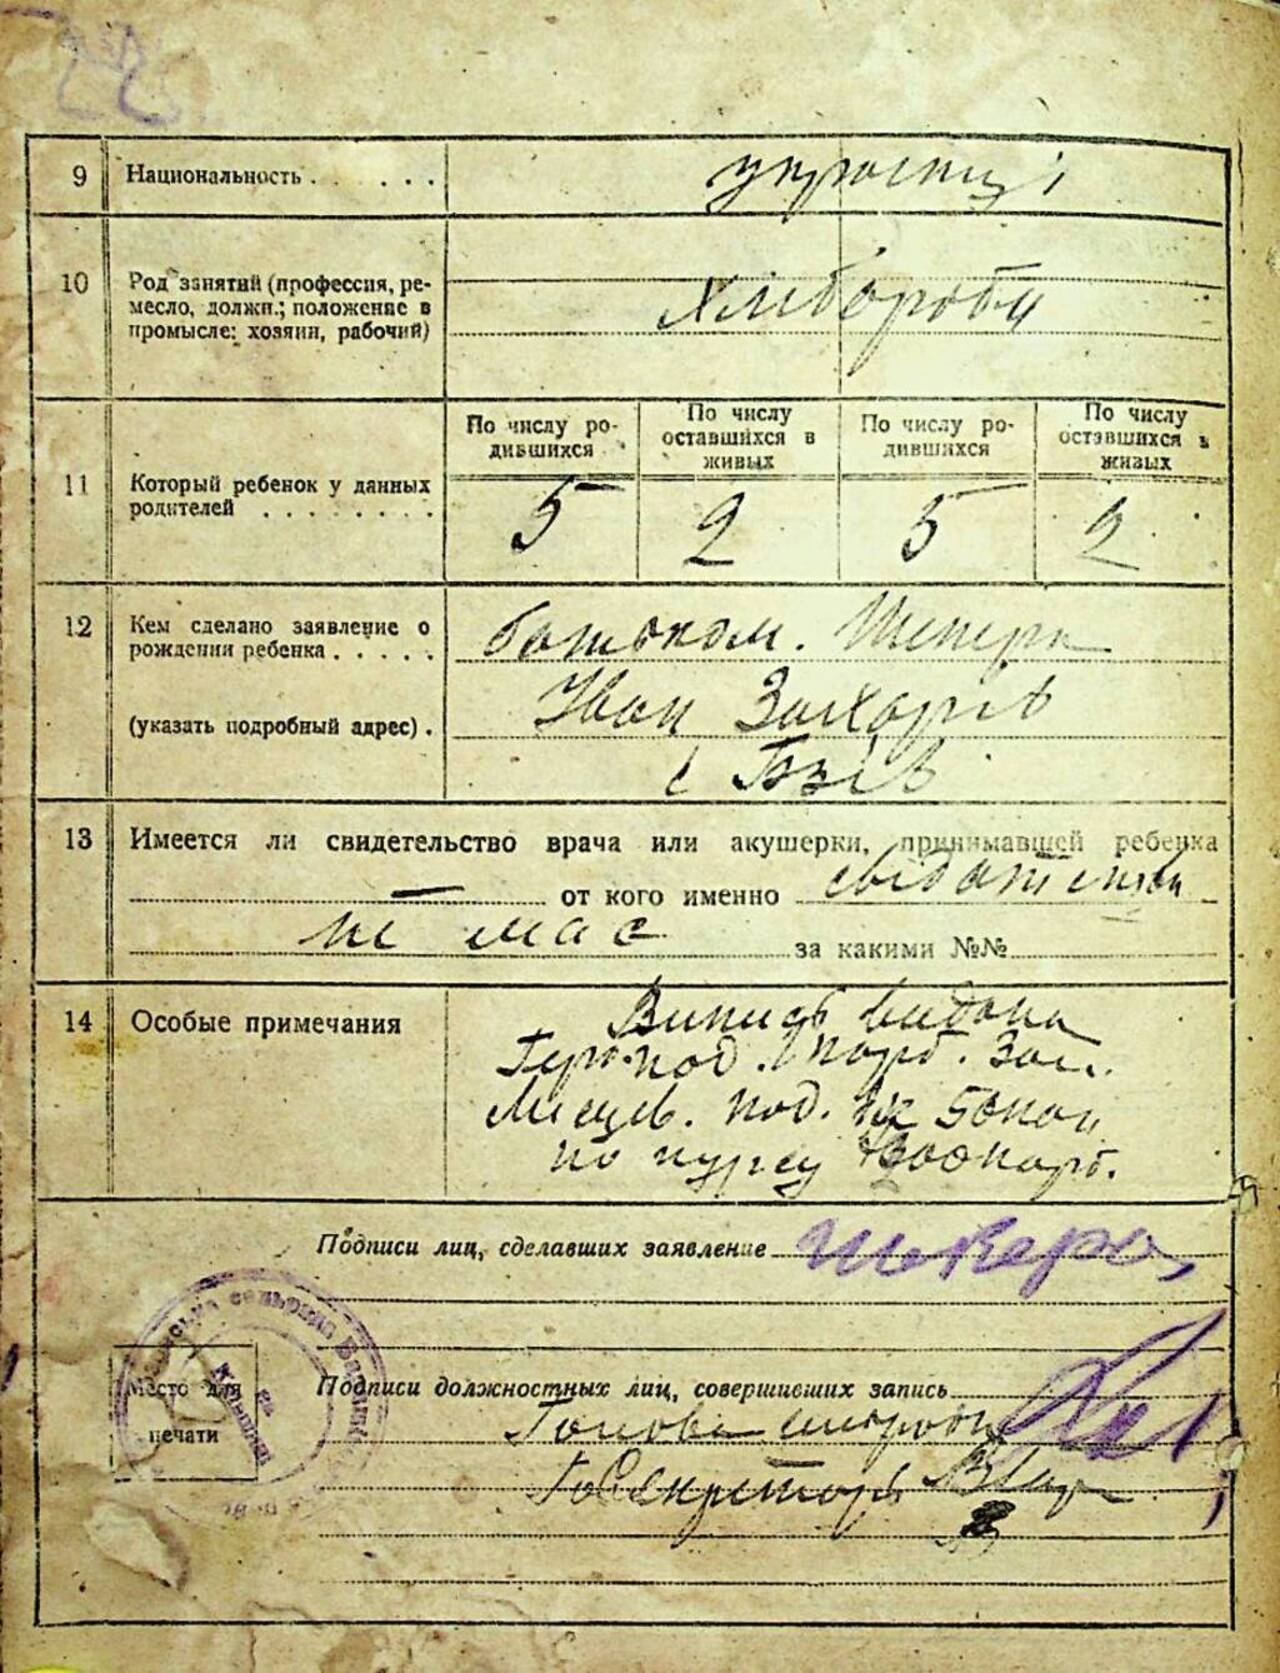 9 Национальность . . . . . українці
10 Род занятий (профессия, ре-
месло, должн.; положение в
промысле: хозяин, рабочий)
хлибороби
11 Который ребенок у данных
родителей . . . . . . . .
По числу ро-
дившихся
По числу
оставшихся в
живых
По числу ро-
дившихся
По числу
оставшихся в
живых
5 2 5 2
12 Кем сделано заявление о
рождении ребенка . . . . .
(указать подробный адрес) .
батьком. Шекера
Іван Захарів
с Бзів
13 Имеется ли свидетельство врача или акушерки, принимавшей ребенка
— от кого именно
не має за какими №№
14 Особые примечания
Випись видана
Мисцев. под. 50 коп
по курсу
Подписи лиц, сделавших заявление Шекера
Место для
печати
Подписи должностных лиц, совершивших запись
Голова сільради
Секретарь